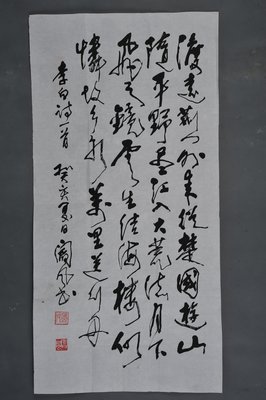 渡遠荆门外来從楚國遊山
隨平野尽江入大荒流月下
飛天鏡雲生结海樓仍
憐故乡水萬里送行舟
李白诗一首 癸亥夏日 书